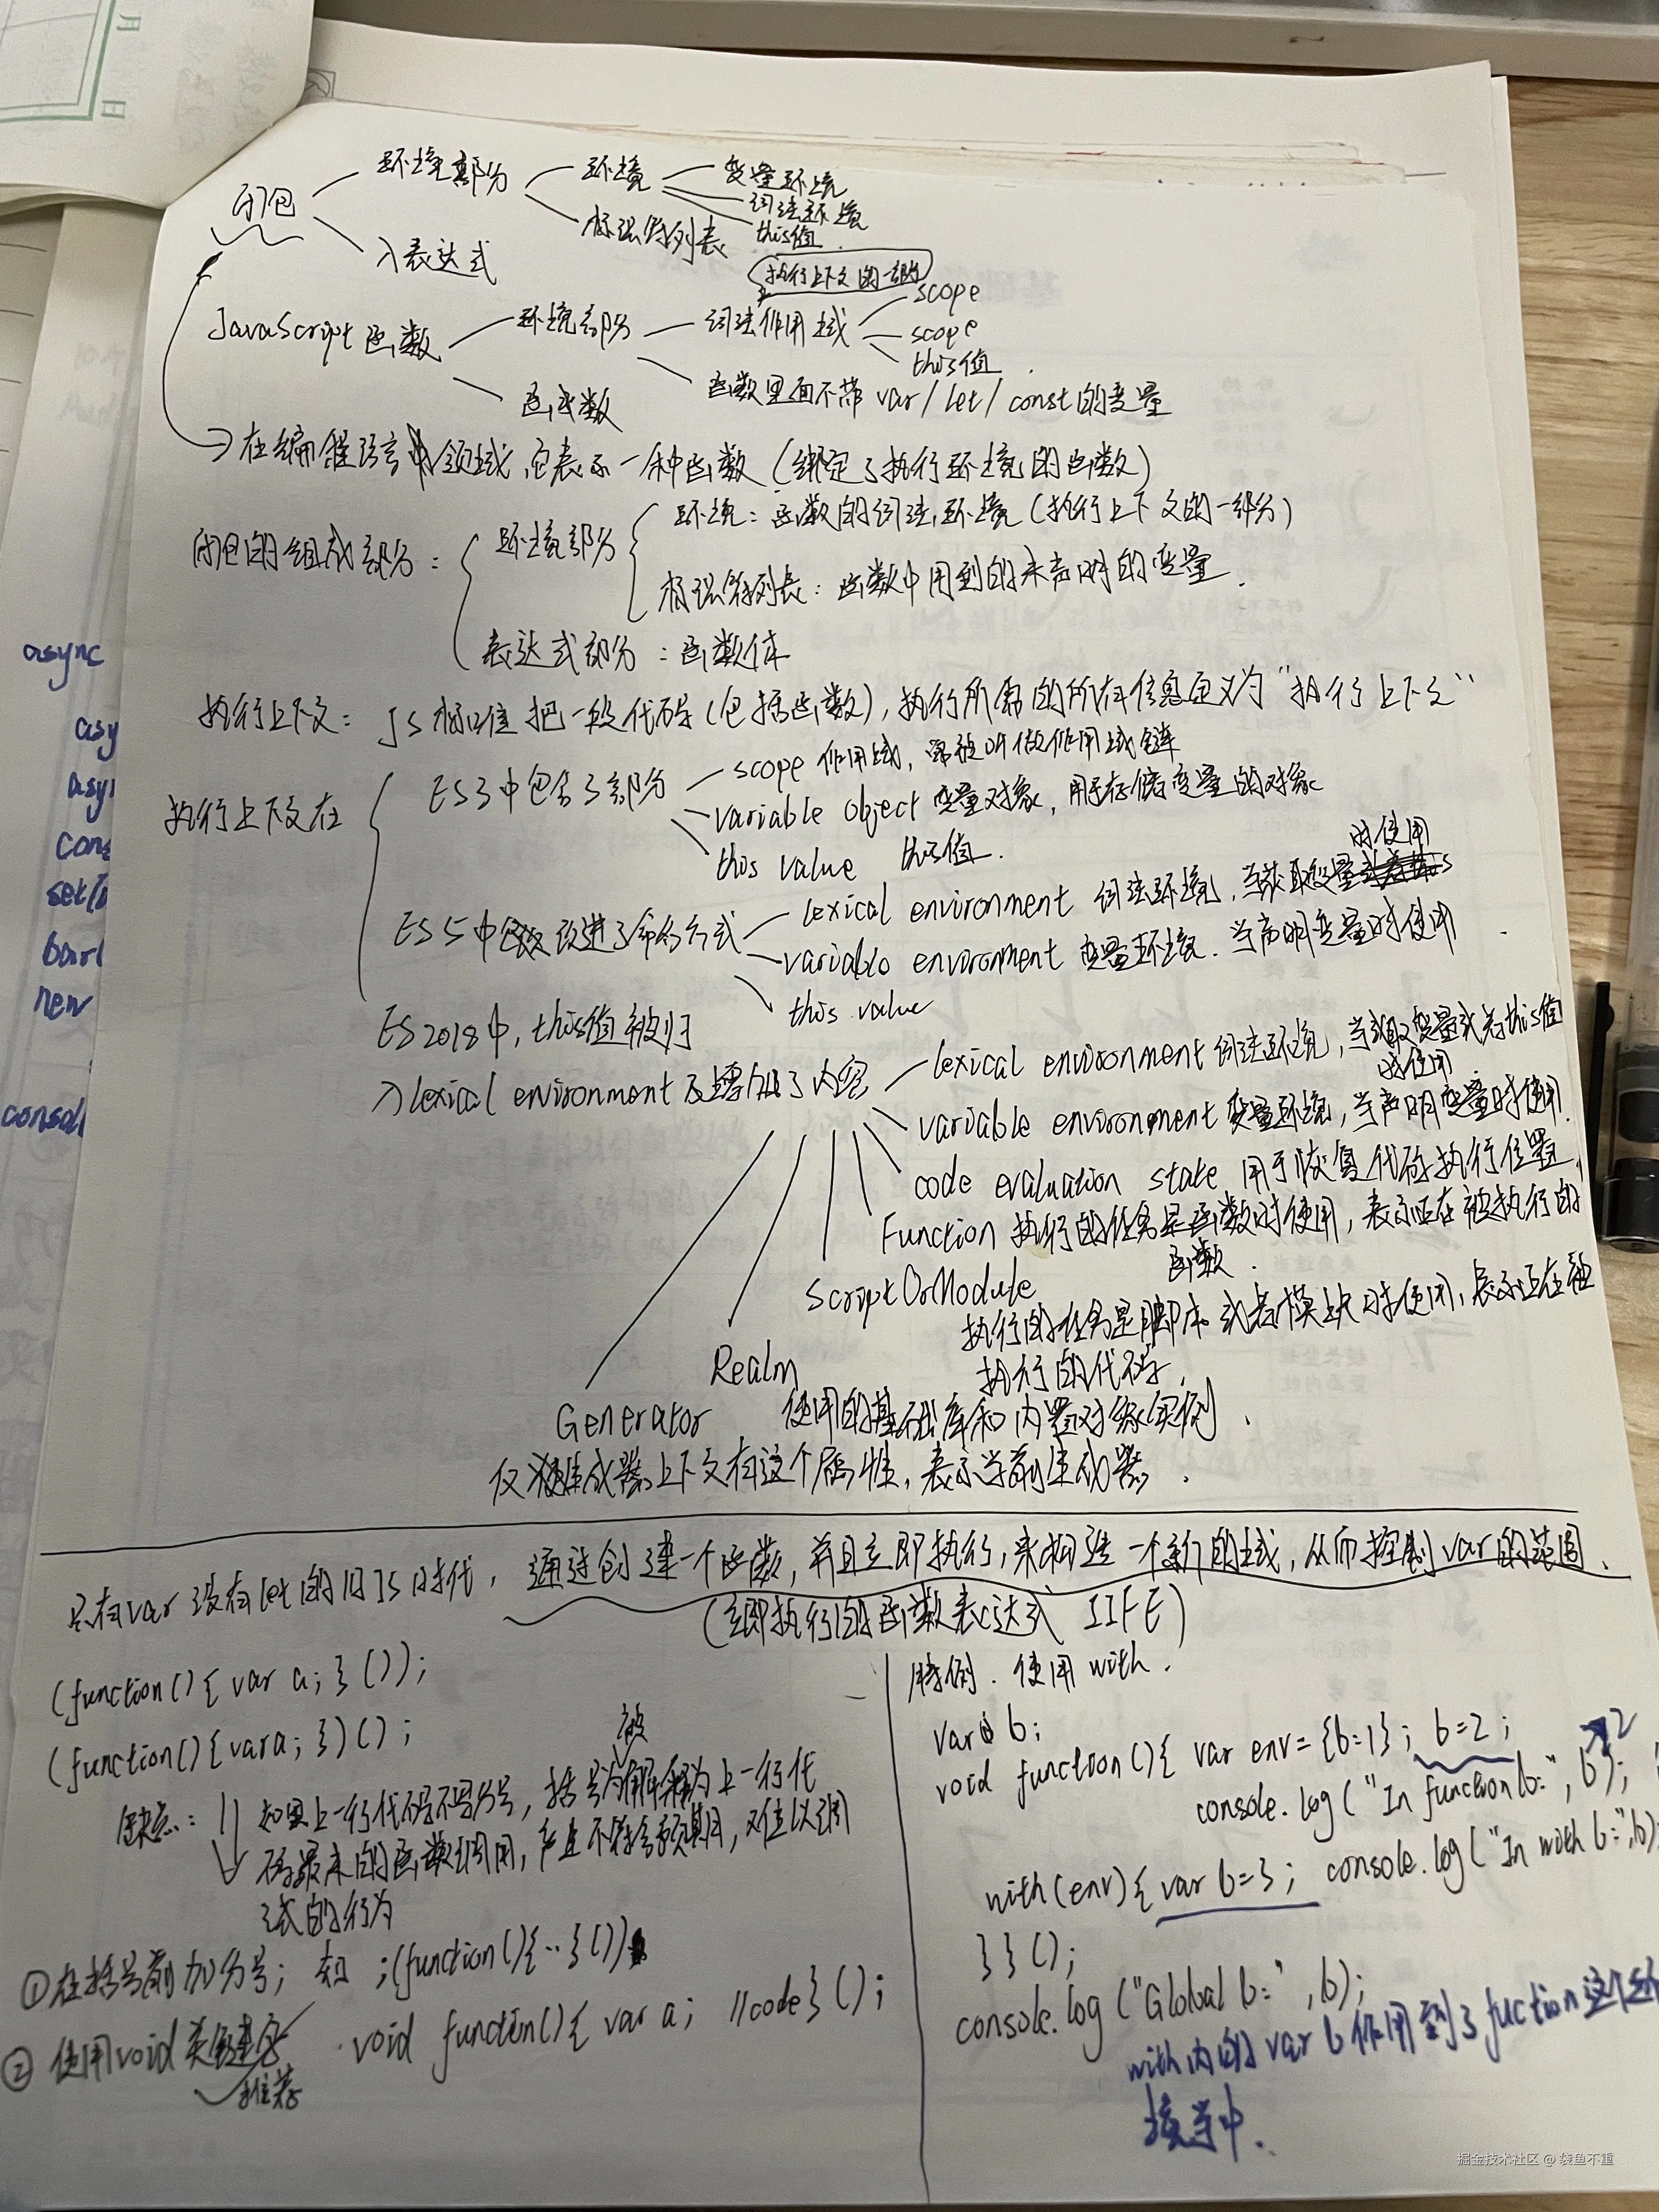 闭包
环境部分
环境
变量环境
词法环境
this值
标识符列表
入表达式
执行上下文的一部分
JavaScript 函数
环境部分
词法作用域
scope
scope
this值
函数里面不带 var/let/const的变量
函数
在编程语言中领域,它表示一种函数(绑定了执行环境的函数)
闭包的组成部分:
环境部分
环境:函数的词法环境(执行上下文的一部分)
标识符列表:函数中用到的未声明的变量.
表达式部分:函数体
执行上下文: JS标准把一段代码(包括函数),执行所需的所有信息定义为“执行上下文”
执行上下文在
ES3中包含3部分
scope 作用域,常被叫做作用域链
variable object 变量对象,用于存储变量的对象
this value this值.
ES5中改进了命名方式
lexical environment 词法环境,当获取变量时使用
variable environment 变量环境.当声明变量时使用
this value
ES2018中,this值被归
入lexical environment及增加了内容
lexical environment 词法环境,当获取变量或者this值
时使用
variable environment 变量环境,当声明变量时使用.
code evaluation state 用于恢复代码执行位置
Function 执行的任务是函数时使用,表示正在被执行的
函数.
ScriptOrModule
执行的任务是脚本或者模块时使用,表示正在被
执行的代码.
Realm
使用的基础库和内置对象实例.
Generator
仅生成器上下文有这个属性,表示当前生成器.
只有var没有let的旧JS时代,通过创建一个函数,并且立即执行,来构造一个新的域,从而控制var的范围.
(立即执行的函数表达式 IIFE)
(function(){ var a; }());
(function(){var a; })();
缺点: 如果上一行代码不写分号,括号被解释为上一行代
码最末的函数调用,产生不符合预期,难以调
试的行为
①在括号前加分号; 如 ;(function(){..}())
②使用void关键字 void function(){ var a; //code}();
推荐
特例.使用with.
var b;
void function(){ var env={b:1}; b=2;
console.log("In function b:", b);
2
with(env){ var b=3; console.log("In with b:",b);
}}();
console.log("Global b:",b);
with内的var b作用到了fuction这个
环境当中.
async
consol
new
掘金技术社区 @ 袋鱼不重